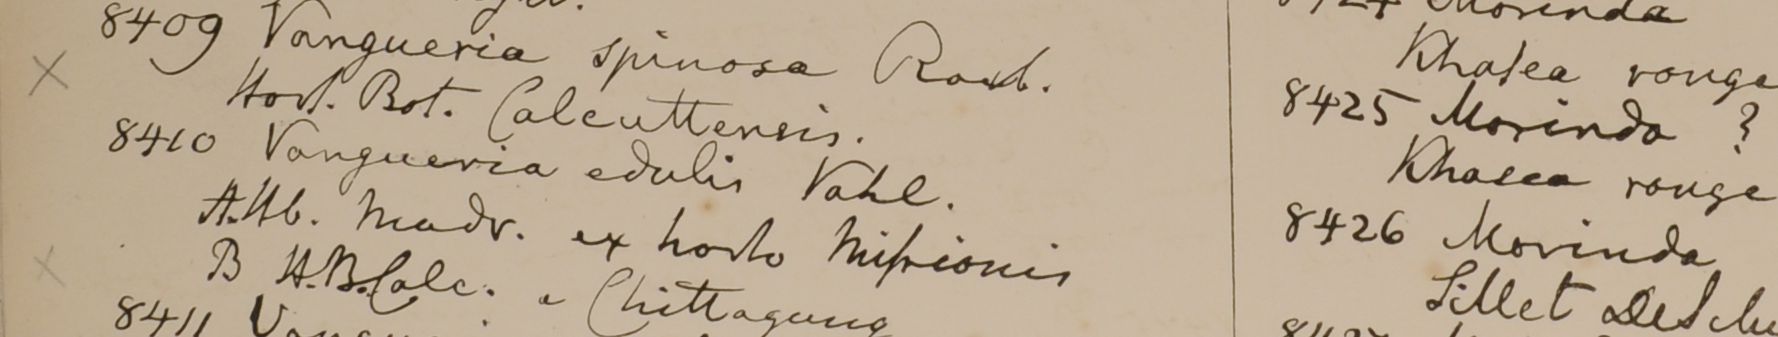 8409 Vangueria spinosa Roxb.
Hort. Bot. Calcuttensis.
8410 Vangueria edulis Vahl.
A. Hb. Madr. ex horto Missionis
B H.B. Calc. e Chittagung
8411
Morinda
Khasea rouge
8425 Morinda ?
Khasea rouge
8426 Morinda
Sillet